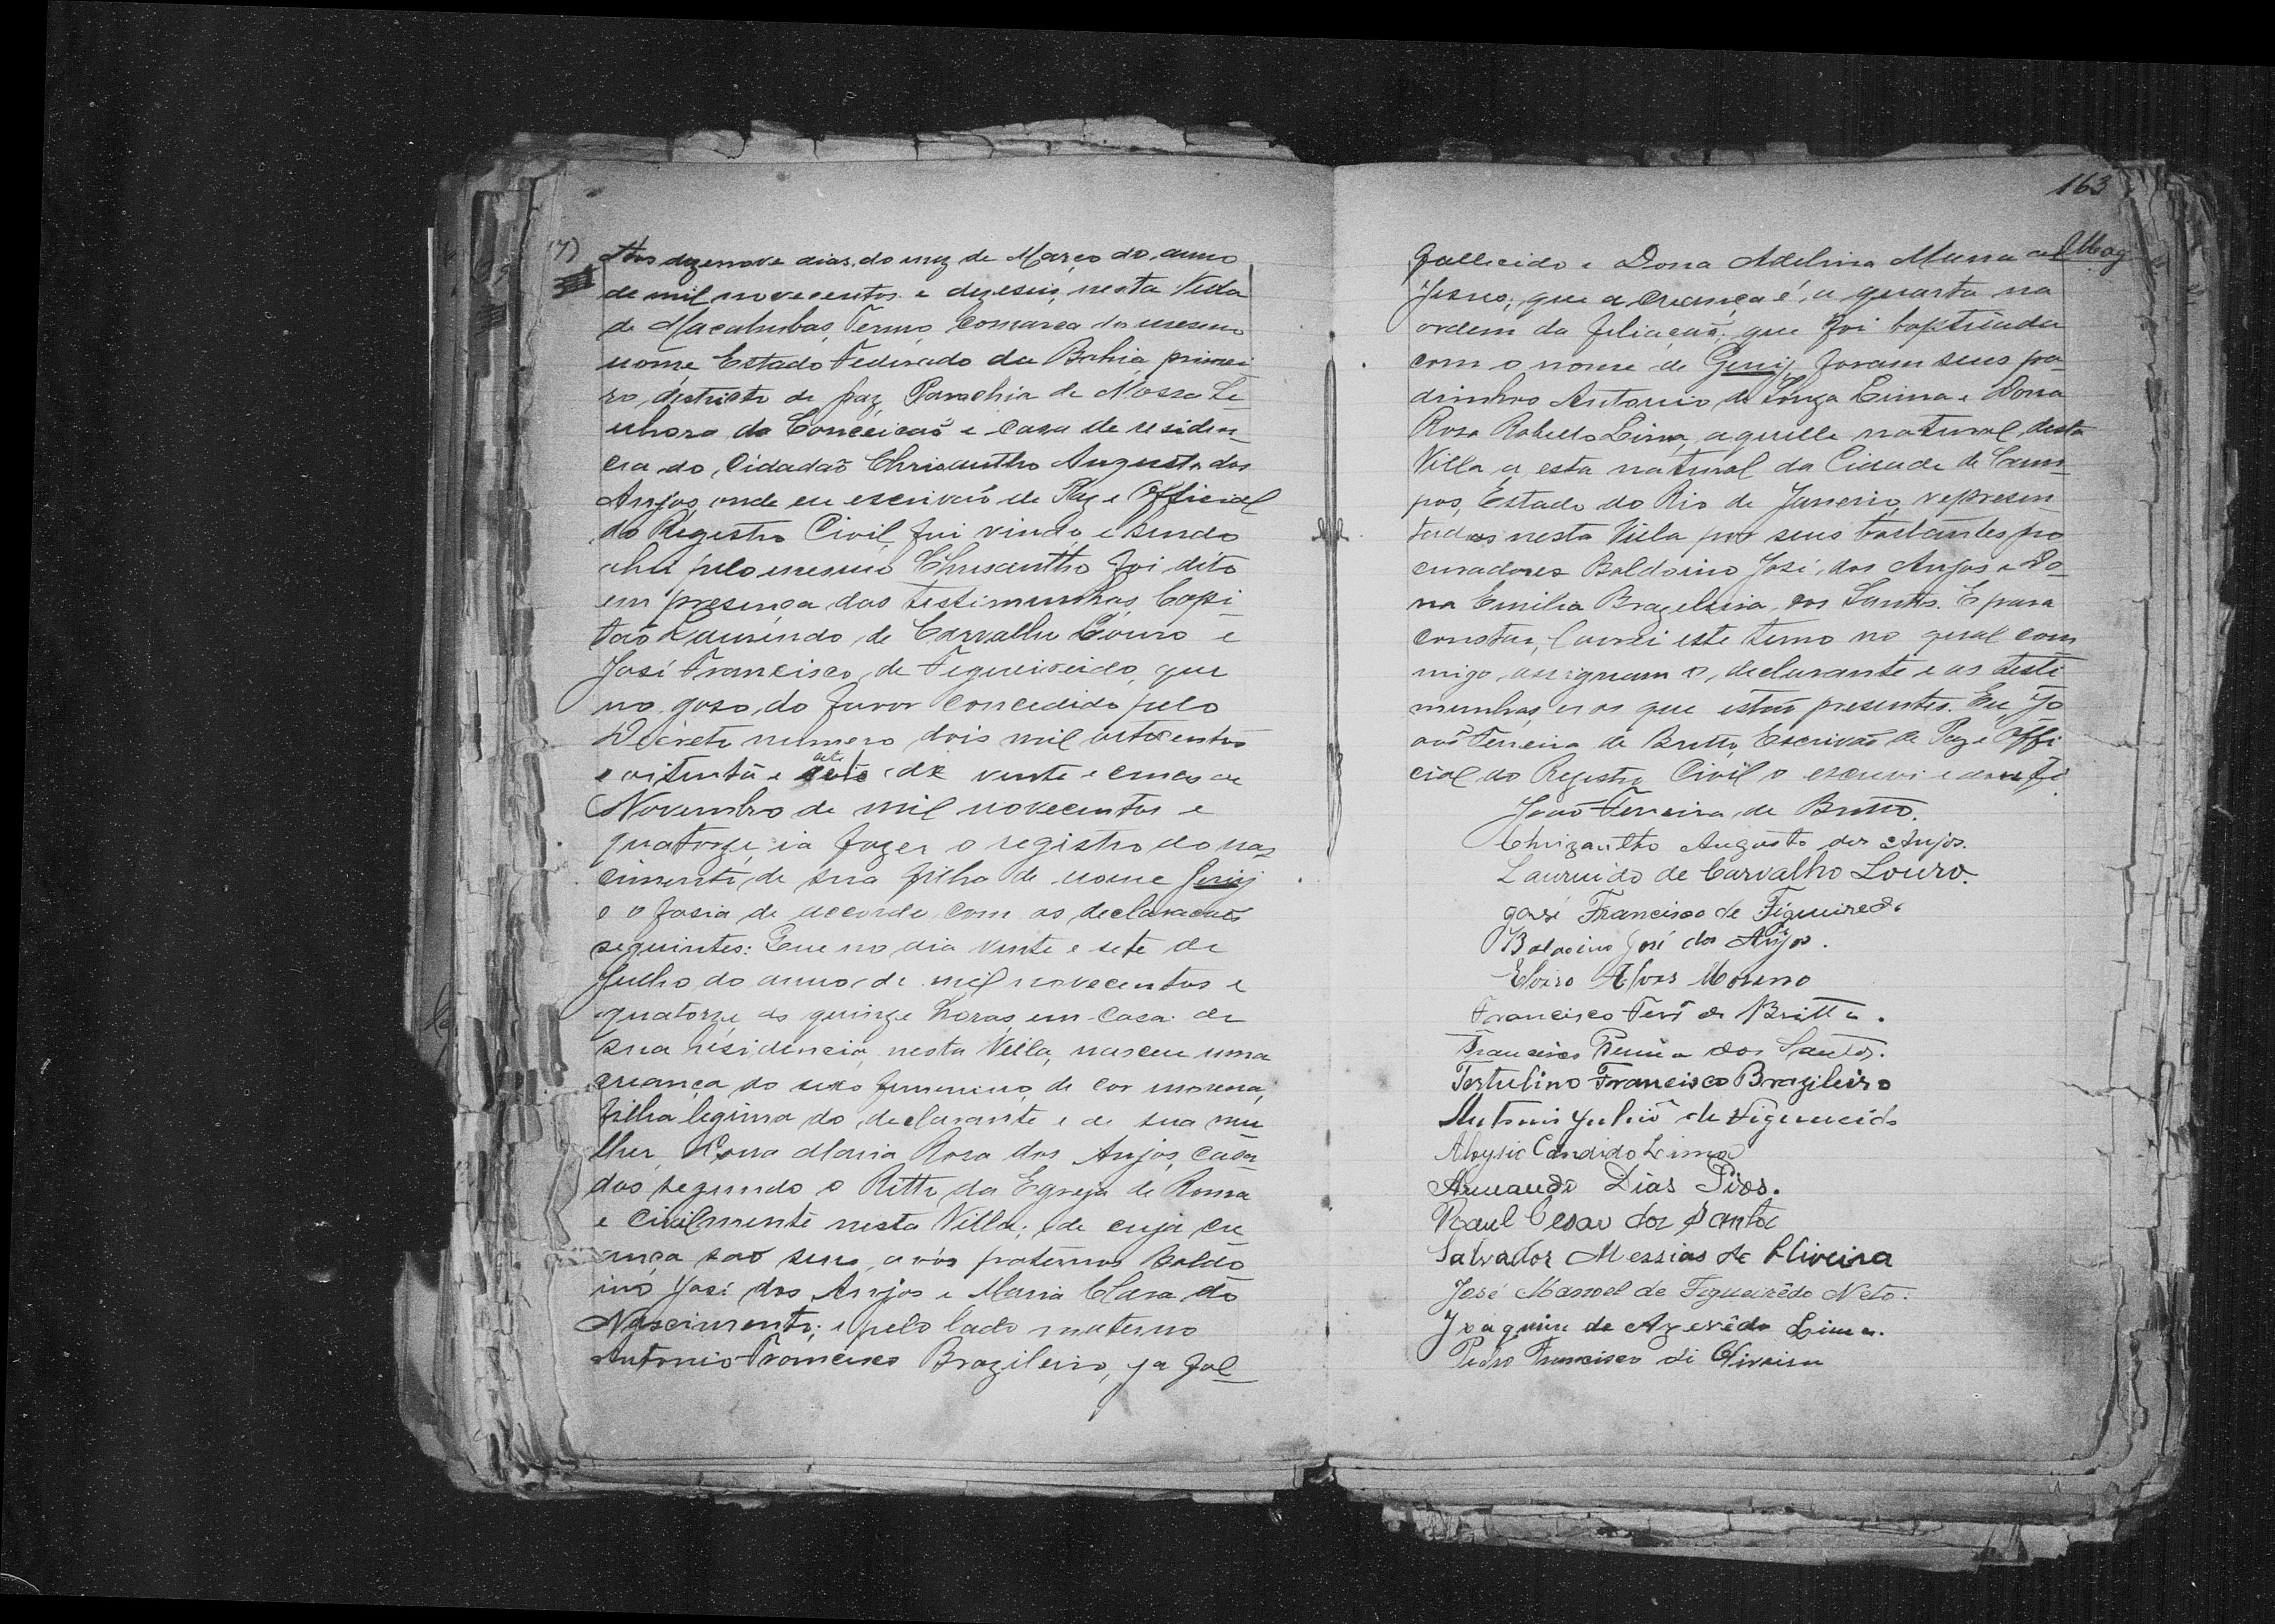 163
17) Aos dezenove dias do mez de Março do anno
de mil novecentos e dezeseis, nesta Villa
de Macahubas, Termo, comarca do mesmo
nome, Estado Federado da Bahia, primei
ro districto de paz, Parochia de Nossa Se-
nhora da Conceicaõ e casa de residen-
cia do Cidadaõ Chrisantho Augusto dos
Anjos, onde eu escrivaõ de Paz e Official
do Registro Civil, fui vindo, e sendo
ahi pelo mesmo Chrisantho foi dito
em presença das testimunhas, Capi
taõ Laurindo de Carvalho Louro e
José Francisco de Figueireido, que
no goso do favor concedido pelo
Decreto numero dois mil oitocentos
e oitenta e sete de vente e cinco de
Novembro de mil novecentos e
quatorze, ia fazer o registro do nas
cimento, de sua filha de nome
e o fasia de accordo com as declaracaõs
seguintes: Que no dia vinte e sete de
Julho do anno de mil novecentos e
quatorze, as quinze horas, em casa de
sua residencia nesta Villa, nasceu uma
criança do sexo femenino, de cor morena,
filha legima do declarante e de sua mu
lher, Dona Maria Rosa dos Anjos, casa
dos segundo o Ritto da Egreja de Roma
e civilmente nesta Villa; de cuja cri
ança saõ seus avós paternos Baldo
ino José dos Anjos e Maria Clara do
Nascimento; e pelo lado materno
Antonio Francisco Brazileiro, ja fal-
fallecido e Dona Adelina Maria de
Jesus; que a criança é, a quarta na
ordem da filiaçaõ; que foi baptisada
com o nome de foram seus pa-
drinhos Antonio de Souza Lima e Dona
Rosa Rabello Lima, aquelle natural desta
Villa, e esta natural da Cidade de Cam-
pos, Estado do Rio de Janeiro, represen
tados nesta Villa por seus bastantes pro
curadores Baldoino José dos Anjos e Do-
na Emilia Brazileira dos Santos. E para
constar, lavrei este termo no qual com
migo assignam o declarante e as testi
munhas e os que estaõ presentes. Eu Jo
aõ Ferreira de Britto, Escrivaõ de Paz e Offi
cial do Registro Civil o escrevi e dou fé
Joaõ Ferreira de Britto.
Chrizantho Augusto dos Anjos.
Laurindo de Carvalho Louro.
José Francisco de Figueiredo
Baldoino José dos Anjos.
Alves Moreno
Francisco Ferª de Britto.
Francisco dos Santos.
Tertulino Francisco Brazileiro
Antonio Julio de Figueireido
Aloysio Candido Lima
Armando Dias Pires.
Raul Cesar dos Santos
Salvador Messias de Oliveira
José Manoel de Figueirêdo Neto.
Joaquim de Azevêdo Lima.
Pedro Francisco di Oliveira